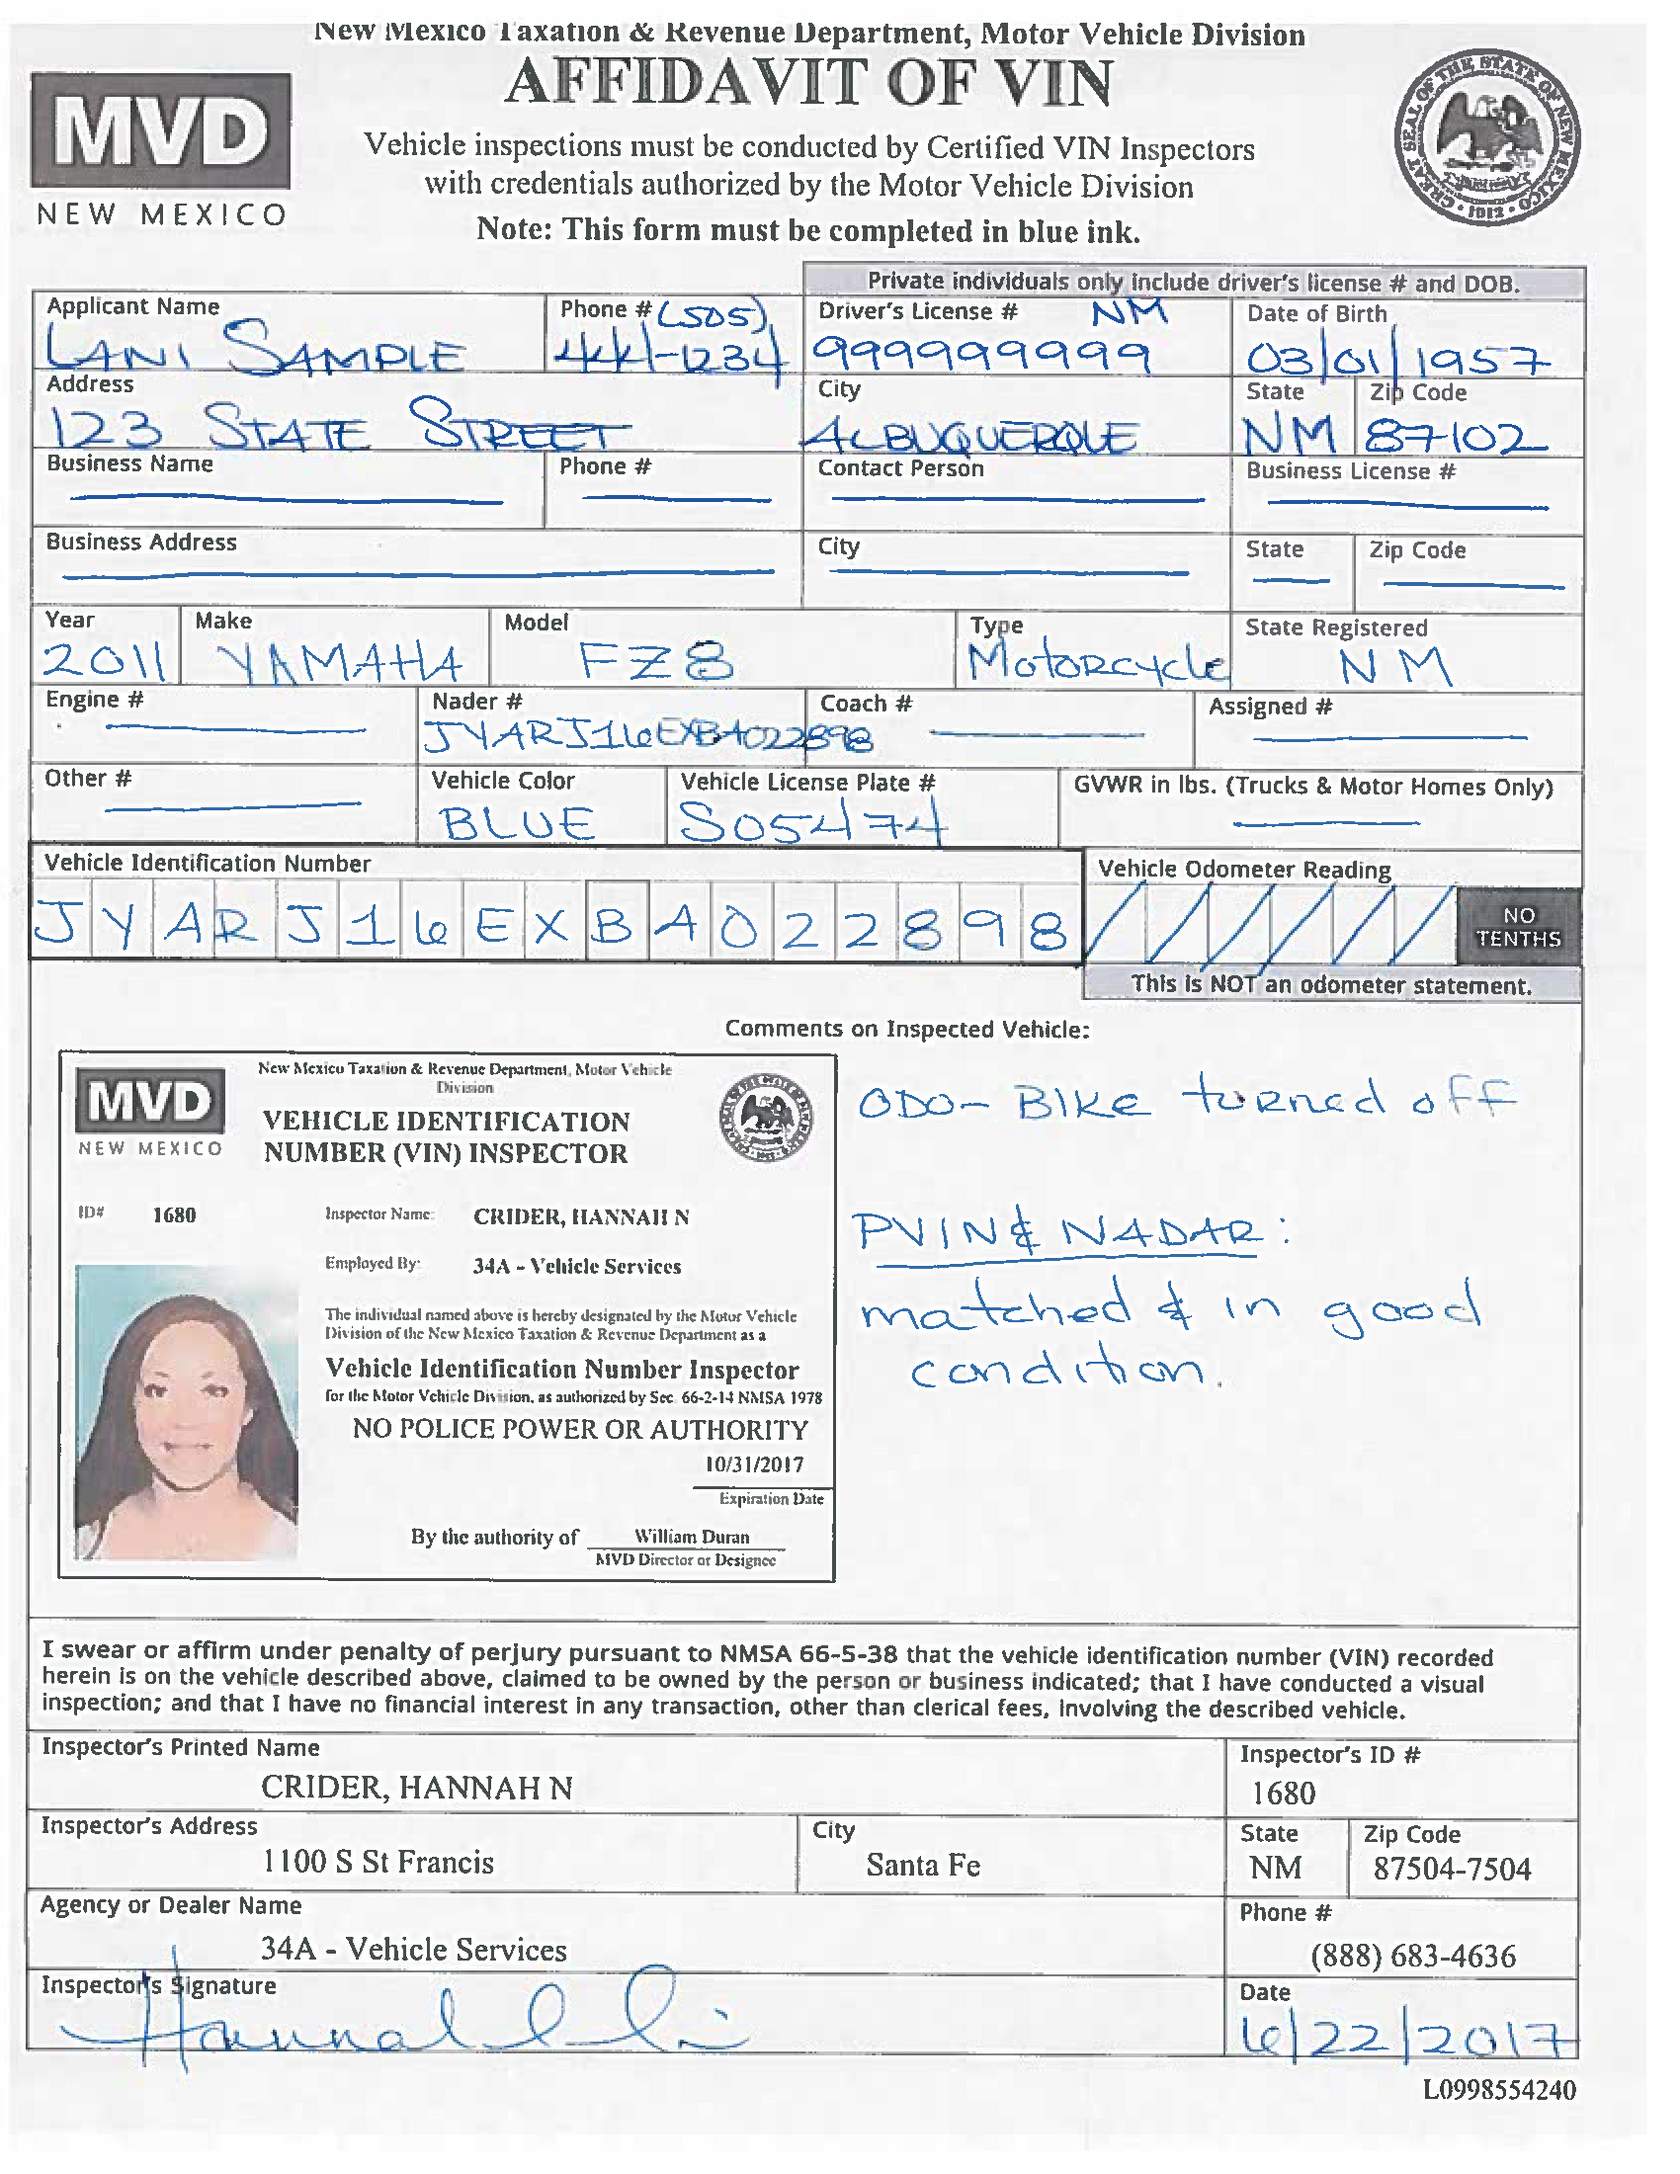 New Mexico Taxation & Revenue Department, Motor Vehicle Division
AFFIDAVIT OF VIN
MVD
NEW MEXICO
Vehicle inspections must be conducted by Certified VIN Inspectors
with credentials authorized by the Motor Vehicle Division
Note: This form must be completed in blue ink.
GREAT SEAL OF THE STATE OF NEW MEXICO
1912
Private individuals only include driver's license # and DOB.
Applicant Name Phone # (505) Driver's License # NM Date of Birth
LANI SAMPLE 444-1234 999999999 03/01/1957
Address City State Zip Code
123 STATE STREET ALBUQUERQUE NM 87102
Business Name Phone # Contact Person Business License #
Business Address City State Zip Code
Year Make Model Type State Registered
2011 YAMAHA FZ8 Motorcycle NM
Engine # Nader # Coach # Assigned #
JYARJ16EXBA022898
Other # Vehicle Color Vehicle License Plate # GVWR in lbs. (Trucks & Motor Homes Only)
BLUE S05474
Vehicle Identification Number Vehicle Odometer Reading
J Y A R J 1 6 E X B A 0 2 2 8 9 8 / / / / / / NO TENTHS
This is NOT an odometer statement.
Comments on Inspected Vehicle:
New Mexico Taxation & Revenue Department, Motor Vehicle
Division
MVD
NEW MEXICO
VEHICLE IDENTIFICATION
NUMBER (VIN) INSPECTOR
ID# 1680 Inspector Name: CRIDER, HANNAH N
Employed By: 34A - Vehicle Services
The individual named above is hereby designated by the Motor Vehicle
Division of the New Mexico Taxation & Revenue Department as a
Vehicle Identification Number Inspector
for the Motor Vehicle Division, as authorized by Sec. 66-2-14 NMSA 1978
NO POLICE POWER OR AUTHORITY
10/31/2017
Expiration Date
By the authority of William Duran
MVD Director or Designee
ODO- BIKE turned off
PVIN & NADAR:
matched & in good
condition.
I swear or affirm under penalty of perjury pursuant to NMSA 66-5-38 that the vehicle identification number (VIN) recorded
herein is on the vehicle described above, claimed to be owned by the person or business indicated; that I have conducted a visual
inspection; and that I have no financial interest in any transaction, other than clerical fees, involving the described vehicle.
Inspector's Printed Name Inspector's ID #
CRIDER, HANNAH N 1680
Inspector's Address City State Zip Code
1100 S St Francis Santa Fe NM 87504-7504
Agency or Dealer Name Phone #
34A - Vehicle Services (888) 683-4636
Inspector's Signature Date
Hannah 6/22/2017
L0998554240